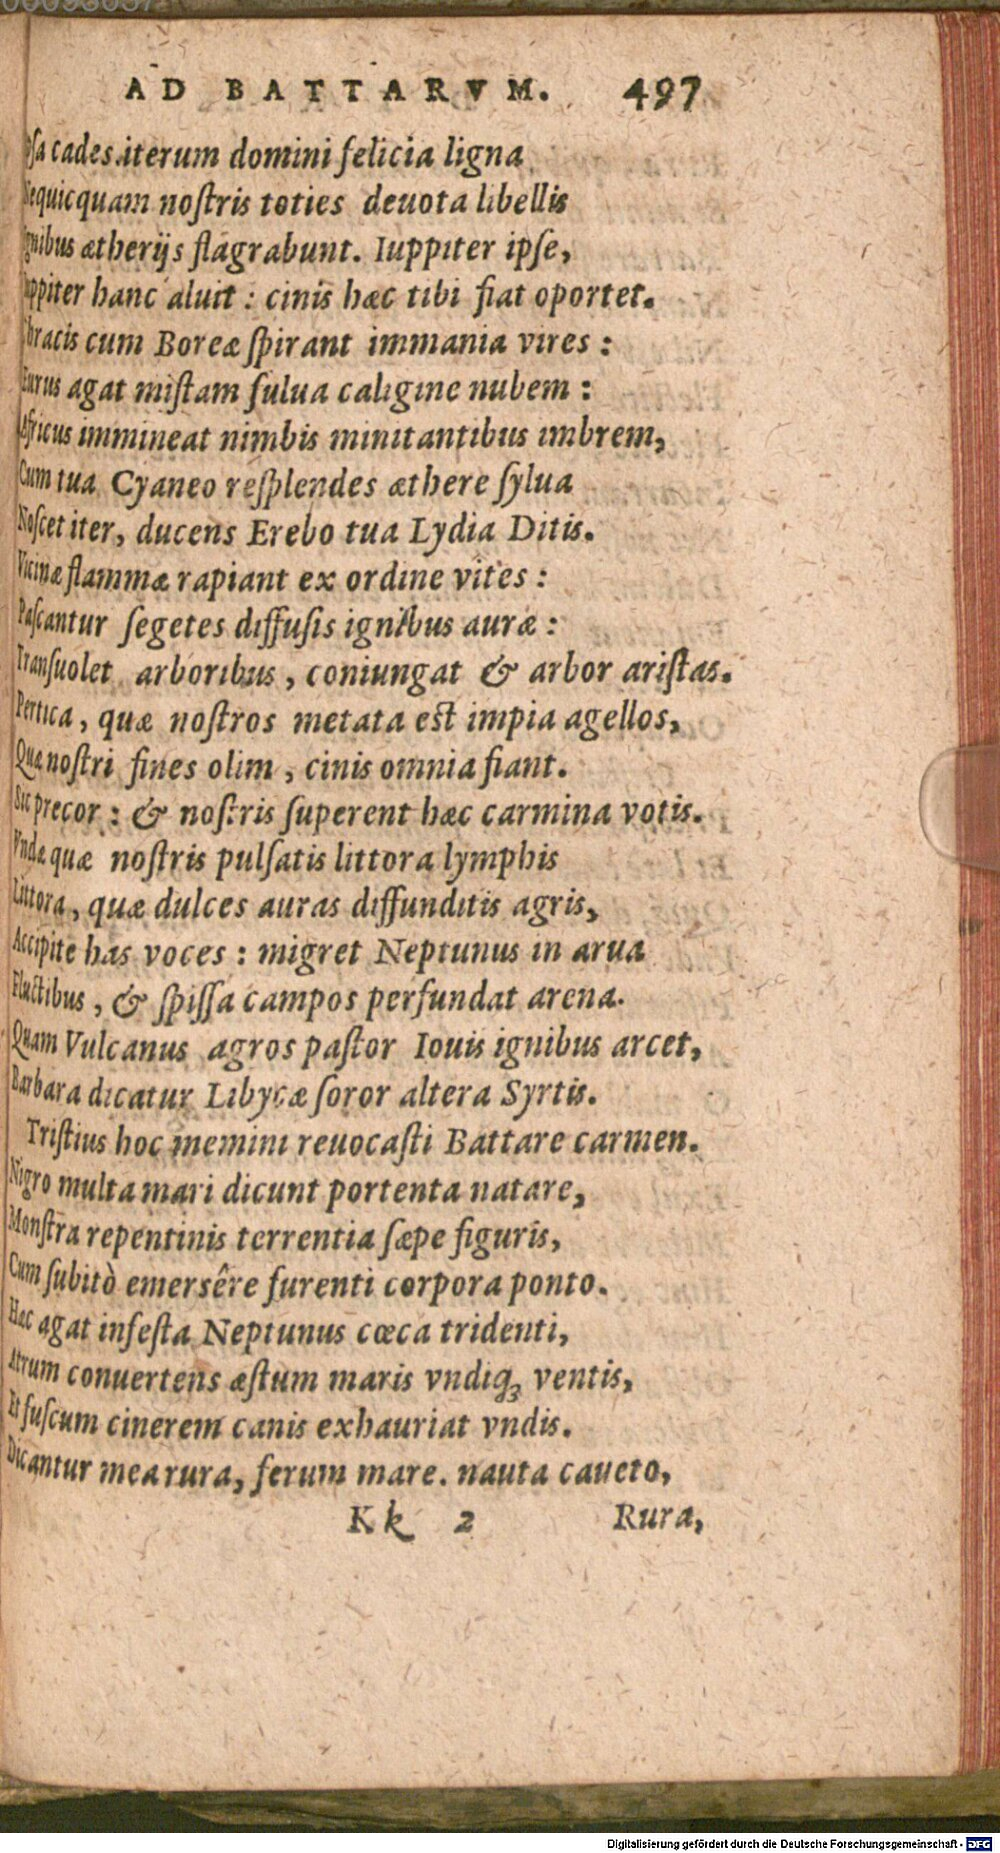 AD BATTARVM. 497
Ipsa cades. iterum domini felicia ligna
Nequicquam nostris toties deuota libellis
Ignibus ætherijs flagrabunt. Iuppiter ipse,
Iuppiter hanc aluit : cinis hæc tibi fiat oportet.
Thracis cum Boreæ spirant immania vires :
Eurus agat mistam fulua caligine nubem :
Africus immineat nimbis minitantibus imbrem,
Cum tua Cyaneo resplendes æthere sylua
Noscet iter, ducens Erebo tua Lydia Ditis.
Vicinæ flammæ rapiant ex ordine vites :
Pascantur segetes diffusis ignibus auræ :
Transuolet arboribus, coniungat & arbor aristas.
Pertica, quæ nostros metata est impia agellos,
Quæ nostri fines olim, cinis omnia fiant.
Sic precor : & nostris superent hæc carmina votis.
Vndæ quæ nostris pulsatis littora lymphis
Littora, quæ dulces auras diffunditis agris,
Accipite has voces : migret Neptunus in arua
Fluctibus, & spissa campos perfundat arena.
Quam Vulcanus agros pastor Iouis ignibus arcet,
Barbara dicatur Libycæ soror altera Syrtis.
Tristius hoc memini reuocasti Battare carmen.
Nigro multa mari dicunt portenta natare,
Monstra repentinis terrentia sæpe figuris,
Cum subitò emersêre furenti corpora ponto.
Hæc agat infesta Neptunus cœca tridenti,
Atrum conuertens æstum maris vndiq; ventis,
Et fuscum cinerem canis exhauriat vndis.
Dicantur mea rura, ferum mare. nauta caueto,
Kk 2 Rura,
Digitalisierung gefördert durch die Deutsche Forschungsgemeinschaft - DFG